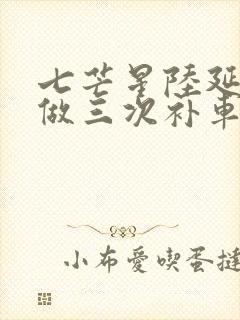 七芒星陸延
做三次补車
小布愛喫蛋撻